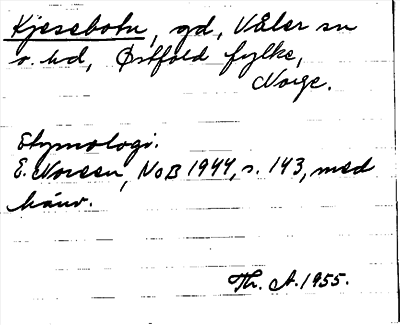 Kjesebotn, gd, Våler sn
o. hd, Østfold fylke,
Norge.
Etymologi.
E. Noreen, NoB 1944, s. 143, med
hänv.
Th. A. 1955.